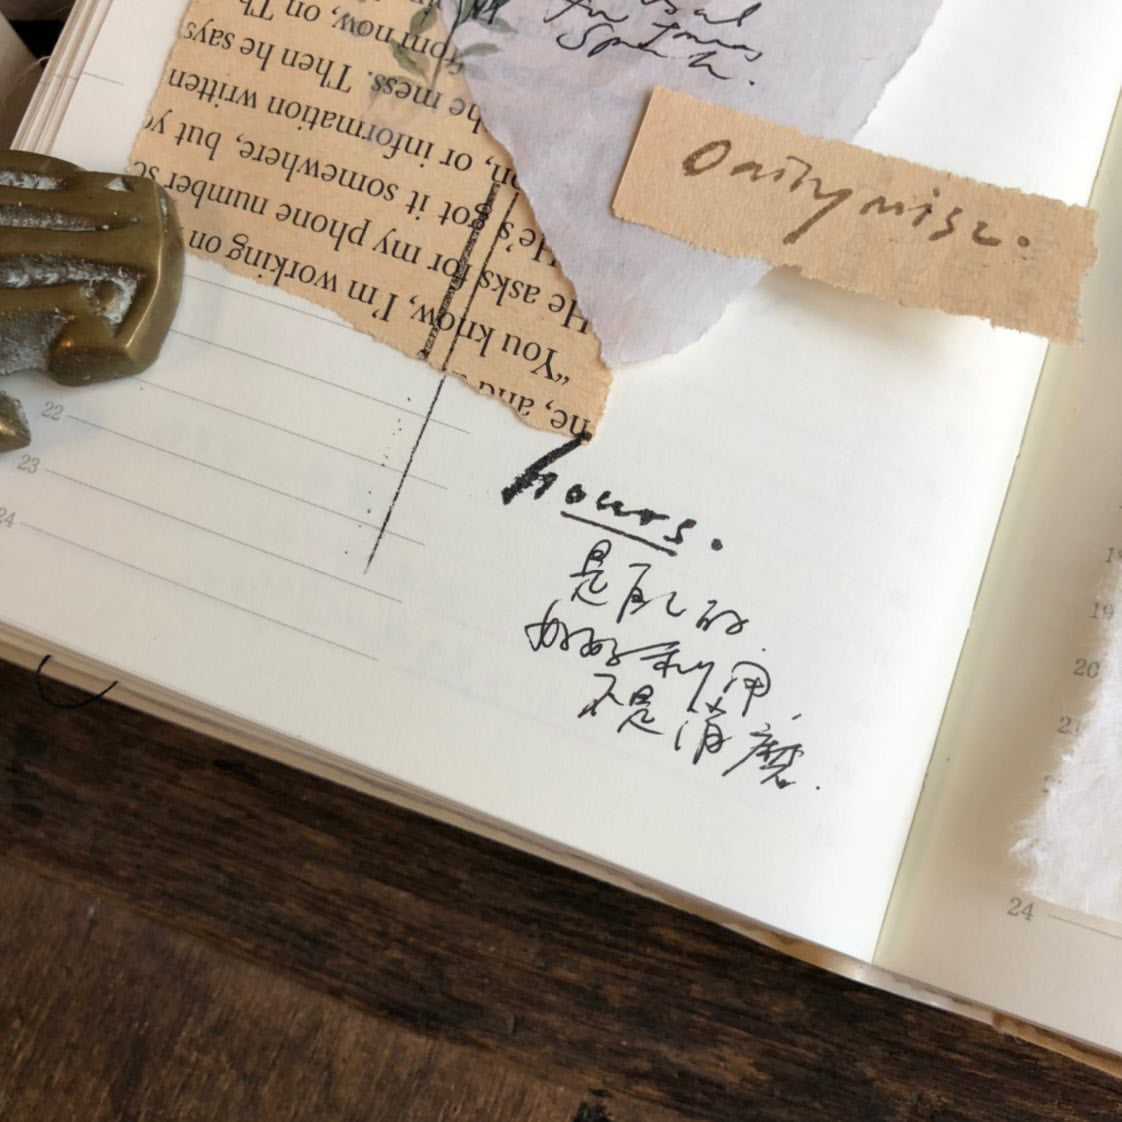 for
daily misc.
om now, on Th
he mess. Then he says
n, or information written
got it somewhere, but yo
He's
He asks for my phone number so
"You know, I'm working on
ne, and
22
23
24
hours.
是自己的
好好利用,
不是消磨.
19
20
24